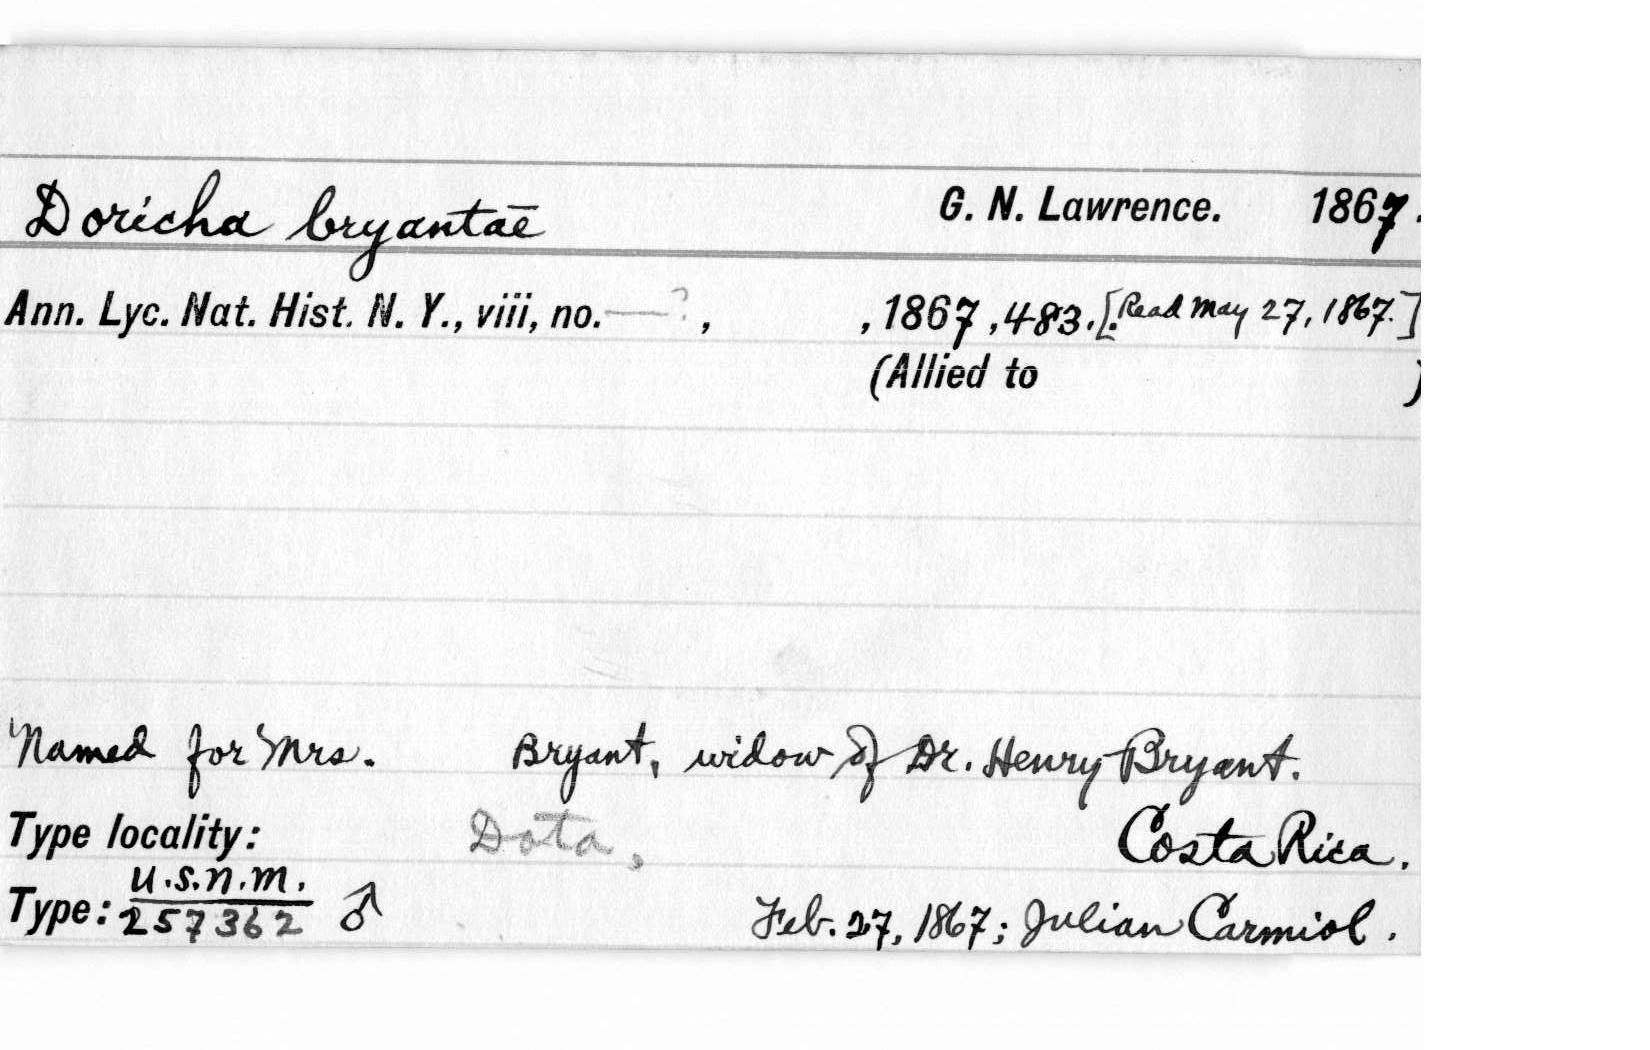 Doricha bryantæ G. N. Lawrence. 1867.
Ann. Lyc. Nat. Hist. N. Y., viii, no. —?, , 1867, 483. [Read May 27, 1867.]
(Allied to )
Named for Mrs. Bryant, widow of Dr. Henry Bryant.
Type locality: Dota, Costa Rica.
U.S.N.M.
Type: 257362 ♂ Feb. 27, 1867; Julian Carmiol.